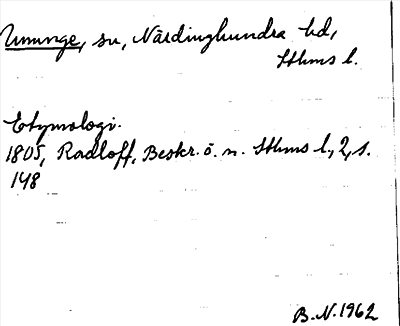 Ununge, sn, Närdinghundra hd,
Sthms l.
Etymologi.
1805, Radloff, Beskr. ö. n. Sthms l., 2, s.
148
B.N. 1962